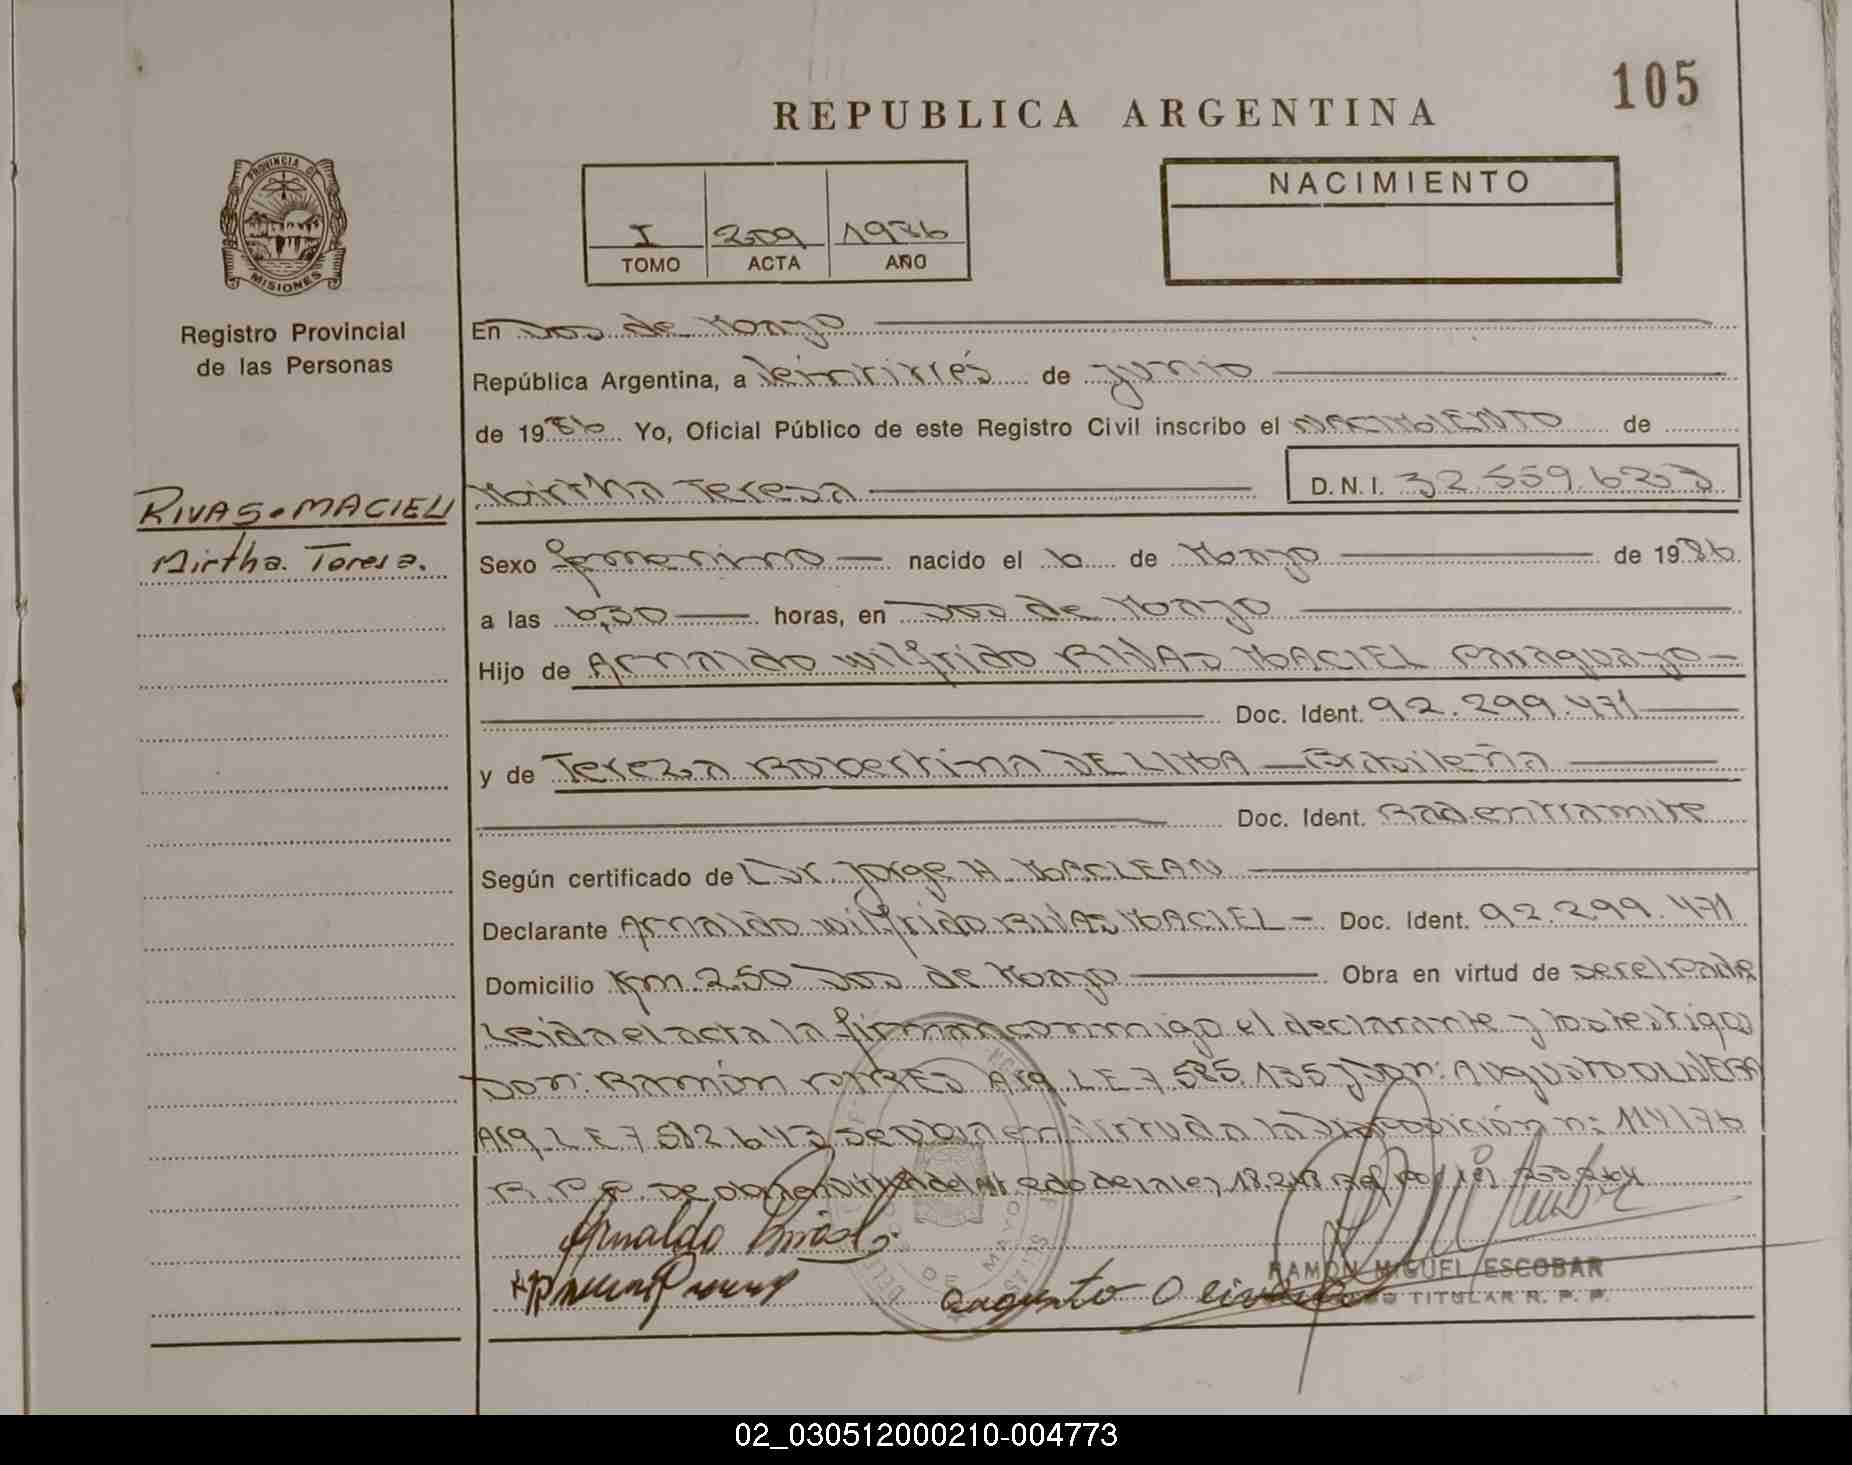 105
REPUBLICA ARGENTINA
PROVINCIA DE
MISIONES
Registro Provincial
de las Personas
I 209 1986
TOMO ACTA AÑO
NACIMIENTO
En Dos de Mayo
República Argentina, a Veintitrés de junio
de 1986 Yo, Oficial Público de este Registro Civil inscribo el NACIMIENTO de
Mirtha Teresa D.N.I. 32.559.6
RIVAS MACIEL
Mirtha Teresa.
Sexo femenino nacido el 6 de Mayo de 1986
a las 6,30 horas, en Dos de Mayo
Hijo de Arnaldo Wilfrido RIVAS MACIEL Paraguayo
Doc. Ident. 92.299.471
y de Tereza Robertina DE LIMA Brasileña
Doc. Ident. Rad en tramite
Según certificado de Dr Jorge H. MACLEAN
Declarante Arnaldo Wilfrido RIVAS MACIEL Doc. Ident. 92.299.471
Domicilio Km. 250 Dos de Mayo Obra en virtud de ser el Padre
Leida el acta la firman conmigo el declarante y los testigos
Don: Ramón Arg. L.E 7.585.135 y Don: Augusto OLIVERA
Arg. L E 7.582.643 se obra en virtud a la Disposición n: 114/76
R.P.P. de la ley 18.248
Arnaldo Rivas
Augusto Oliveira
RAMON MIGUEL ESCOBAR
TITULAR R. P. P.
02_030512000210-004773